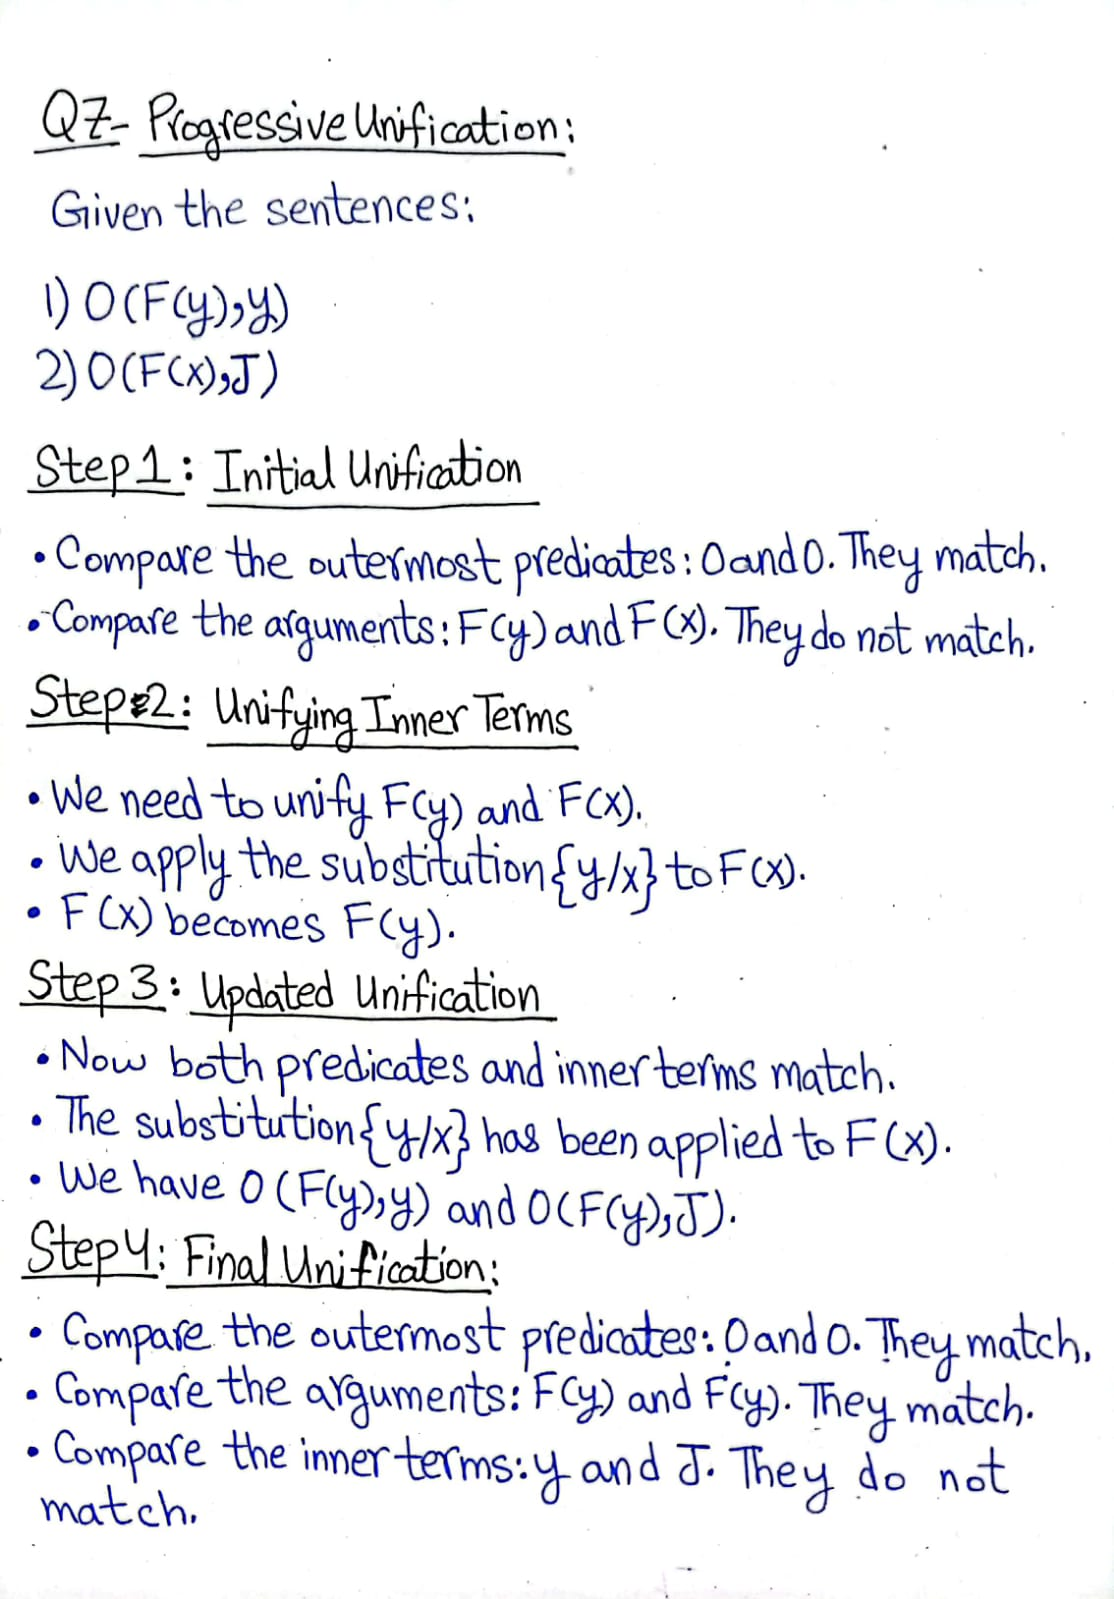 Q7- Progressive Unification:
Given the sentences:
1) O(F(y),y)
2) O(F(x),J)
Step 1: Initial Unification
• Compare the outermost predicates: O and O. They match.
• Compare the arguments: F(y) and F(x). They do not match.
Step 2: Unifying Inner Terms
• We need to unify F(y) and F(x).
• We apply the substitution {y/x} to F(x).
• F(x) becomes F(y).
Step 3: Updated Unification
• Now both predicates and inner terms match.
• The substitution {y/x} has been applied to F(x).
• We have O(F(y),y) and O(F(y),J).
Step 4: Final Unification:
• Compare the outermost predicates: O and O. They match.
• Compare the arguments: F(y) and F(y). They match.
• Compare the inner terms: y and J. They do not
match.